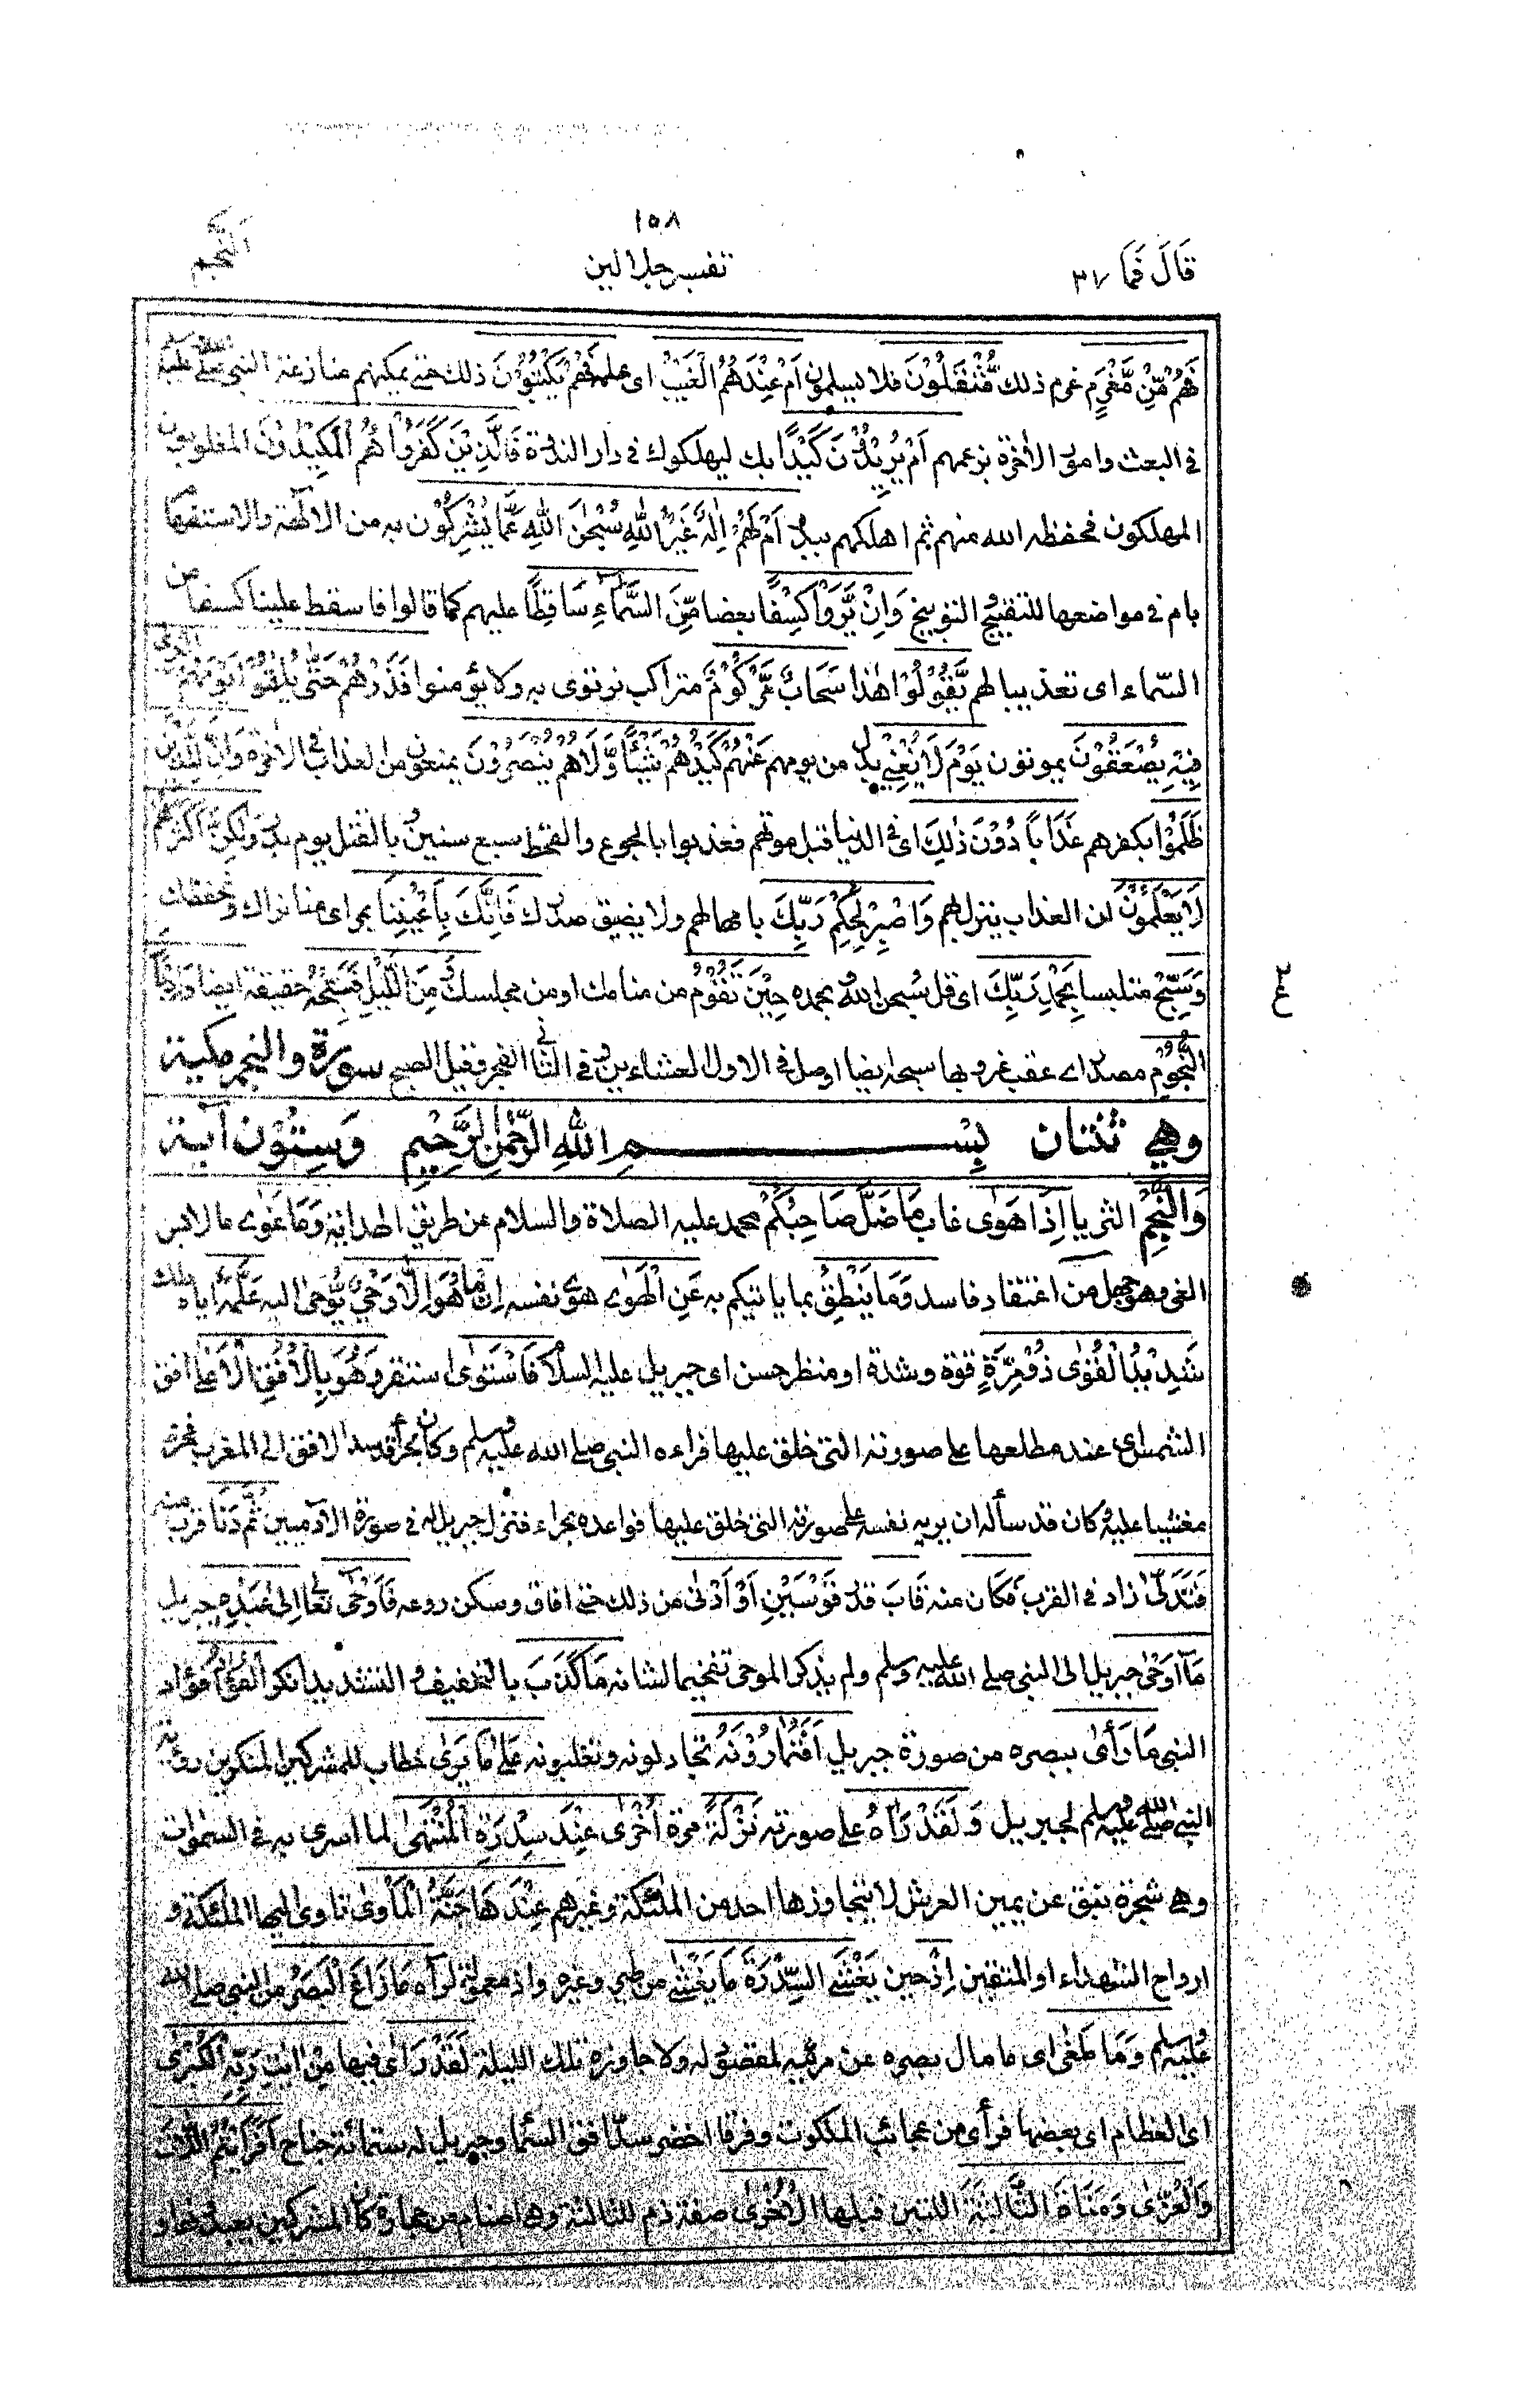 ١٥٨
قَالَ فَمَا ٢٧
تفسير جلالين
اَلنَّجْم
فَهُمْ مِّنْ مَّغْرَمٍ غرم ذلك مُّثْقَلُوْنَ فلا يسلمون اَمْ عِنْدَهُمُ الْغَيْبُ اى علمه فَهُمْ يَكْتُبُوْنَ ذلك حتى يمكنهم منازعة النبى صلى الله عليه
فى البعث وامور الاٰخرة بزعمهم اَمْ يُرِيْدُوْنَ كَيْدًا بك ليهلكوك فى دار الندوة فَالَّذِيْنَ كَفَرُوْا هُمُ الْمَكِيْدُوْنَ المغلوبون
المهلكون فحفظه الله منهم ثم اهلكهم ببدر اَمْ لَهُمْ اِلٰهٌ غَيْرُ اللّٰهِ سُبْحٰنَ اللّٰهِ عَمَّا يُشْرِكُوْنَ به من الالٰهة والاستفهام
بام فى مواضعها للتقبيح والتوبيخ وَاِنْ يَّرَوْا كِسْفًا بعضا مِّنَ السَّمَآءِ سَاقِطًا عليهم كما قالوا فاسقط علينا كسفا من
السّماء اى تعذيبا لهم يَّقُوْلُوْا هٰذا سَحَابٌ مَّرْكُوْمٌ متراكب نرتوى به ولا يؤمنوا فَذَرْهُمْ حَتّٰى يُلٰقُوْا يَوْمَهُمُ الَّذِىْ
فِيْهِ يُصْعَقُوْنَ يموتون يَوْمَ لَا يُغْنِىْ بدل من يومهم عَنْهُمْ كَيْدُهُمْ شَيْئًا وَّلَا هُمْ يُنْصَرُوْنَ يمنعون من العذاب فى الاٰخرة وَاِنَّ لِلَّذِيْنَ
ظَلَمُوْا بكفرهم عَذَابًا دُوْنَ ذٰلِكَ اى فى الدنيا قبل موتهم فعذبوا بالجوع والقحط سبع سنين و بالقتل يوم بدر وَلٰكِنَّ اَكْثَرَهُمْ
لَا يَعْلَمُوْنَ ان العذاب ينزل بهم وَاصْبِرْ لِحُكْمِ رَبِّكَ بامهالهم ولا يضيق صدرك فَاِنَّكَ بِاَعْيُنِنَا بمراى منا نراك ونحفظك
وَسَبِّحْ متلبسا بِحَمْدِ رَبِّكَ اى قل سُبحٰن الله وبحمده حِيْنَ تَقُوْمُ من منامك او من مجلسك وَمِنَ الَّيْلِ فَسَبِّحْهُ حقيقة ايضا وَاِدْبَارَ
النُّجُوْمِ مصدر اے عقب غروبها سبحه ايضا اوصل فى الاول العشاءين و فى الثانى الفجر وقيل الصبح سورة والنجم مكية
وهي ثنتان بِسْـــــــمِ اللهِ الرَّحْمٰنِ الرَّحِيْمِ وَسِتُّوْن آية
وَالنَّجْمِ الثريا اِذَا هَوٰى غاب مَا ضَلَّ صَاحِبُكُمْ محمد عليه الصلاة والسلام عن طريق الهداية وَمَا غَوٰى مالابس
الغى وهو جهل من اعتقاد فاسد وَمَا يَنْطِقُ بما ياتيكم به عَنِ الْهَوٰى هوى نفسه اِنْ ما هُوَ اِلَّا وَحْىٌ يُّوْحٰى اليه عَلَّمَهٗ اياه ملك
شَدِيْدُ الْقُوٰى ذُوْ مِرَّةٍ قوة وشدة او منظر حسن اى جبريل عليه السلام فَاسْتَوٰى استقر وَهُوَ بِالْاُفُقِ الْاَعْلٰى افق
الشمس اى عند مطلعها على صورته التى خلق عليها فراٰه النبى صلى الله عليه وسلم وكان بحراء قد سد الافق الى المغرب فخر
مغشيا عليه و كان قد سأله ان يريه نفسه على صورته التى خلق عليها فواعده بحراء فنزل جبريل له فى صورة الآدميين ثُمَّ دَنَا قرب منه
فَتَدَلّٰى زاد فى القرب فَكَانَ منه قَابَ قدر قَوْسَيْنِ اَوْ اَدْنٰى من ذلك حتى افاق وسكن روعه فَاَوْحٰى تعالى اِلٰى عَبْدِهٖ جبريل
مَآ اَوْحٰى جبريل الى النبى صلى الله عليه وسلم ولم يذكر الموحى تفخيما لشانه مَا كَذَبَ بالتخفيف و التشديد انكر الْفُؤَادُ فؤاد
النبى مَا رَاٰى ببصره من صورة جبريل اَفَتُمٰرُوْنَهٗ تجادلونه وتغلبونه عَلٰى مَا يَرٰى خطاب للمشركين المنكرين رؤية
النبى صلى الله عليه وسلم لجبريل وَلَقَدْ رَاٰهُ على صورته نَزْلَةً مرة اُخْرٰى عِنْدَ سِدْرَةِ الْمُنْتَهٰى لما اسرى به فى السمٰوات
وهى شجرة نبق عن يمين العرش لا يتجاوزها احد من الملٰئكة وغيرهم عِنْدَهَا جَنَّةُ الْمَأْوٰى تاوى اليها الملٰئكة و
ارواح الشهداء او المتقين اِذْ حين يَغْشَى السِّدْرَةَ مَا يَغْشٰى من طير وغيره واذ معمولة لراٰه مَا زَاغَ الْبَصَرُ من النبى صلى الله
عليه وسلم وَمَا طَغٰى اى ما مال بصره عن مرئيه المقصود له ولا جاوزه تلك الليلة لَقَدْ رَاٰى فيها مِنْ اٰيٰتِ رَبِّهِ الْكُبْرٰى
اى العظام اى بعضها فرأى من عجائب الملكوت رفرفا اخضر سدّ افق السماء وجبريل له ستمائة جناح اَفَرَاَيْتُمُ اللّٰتَ
وَالْعُزّٰى وَمَنَاةَ الثَّالِثَةَ اللتين قبلها الْاُخْرٰى صفة ذم للثالثة وهى اصنام من حجارة كان المشركين يعبدونها و